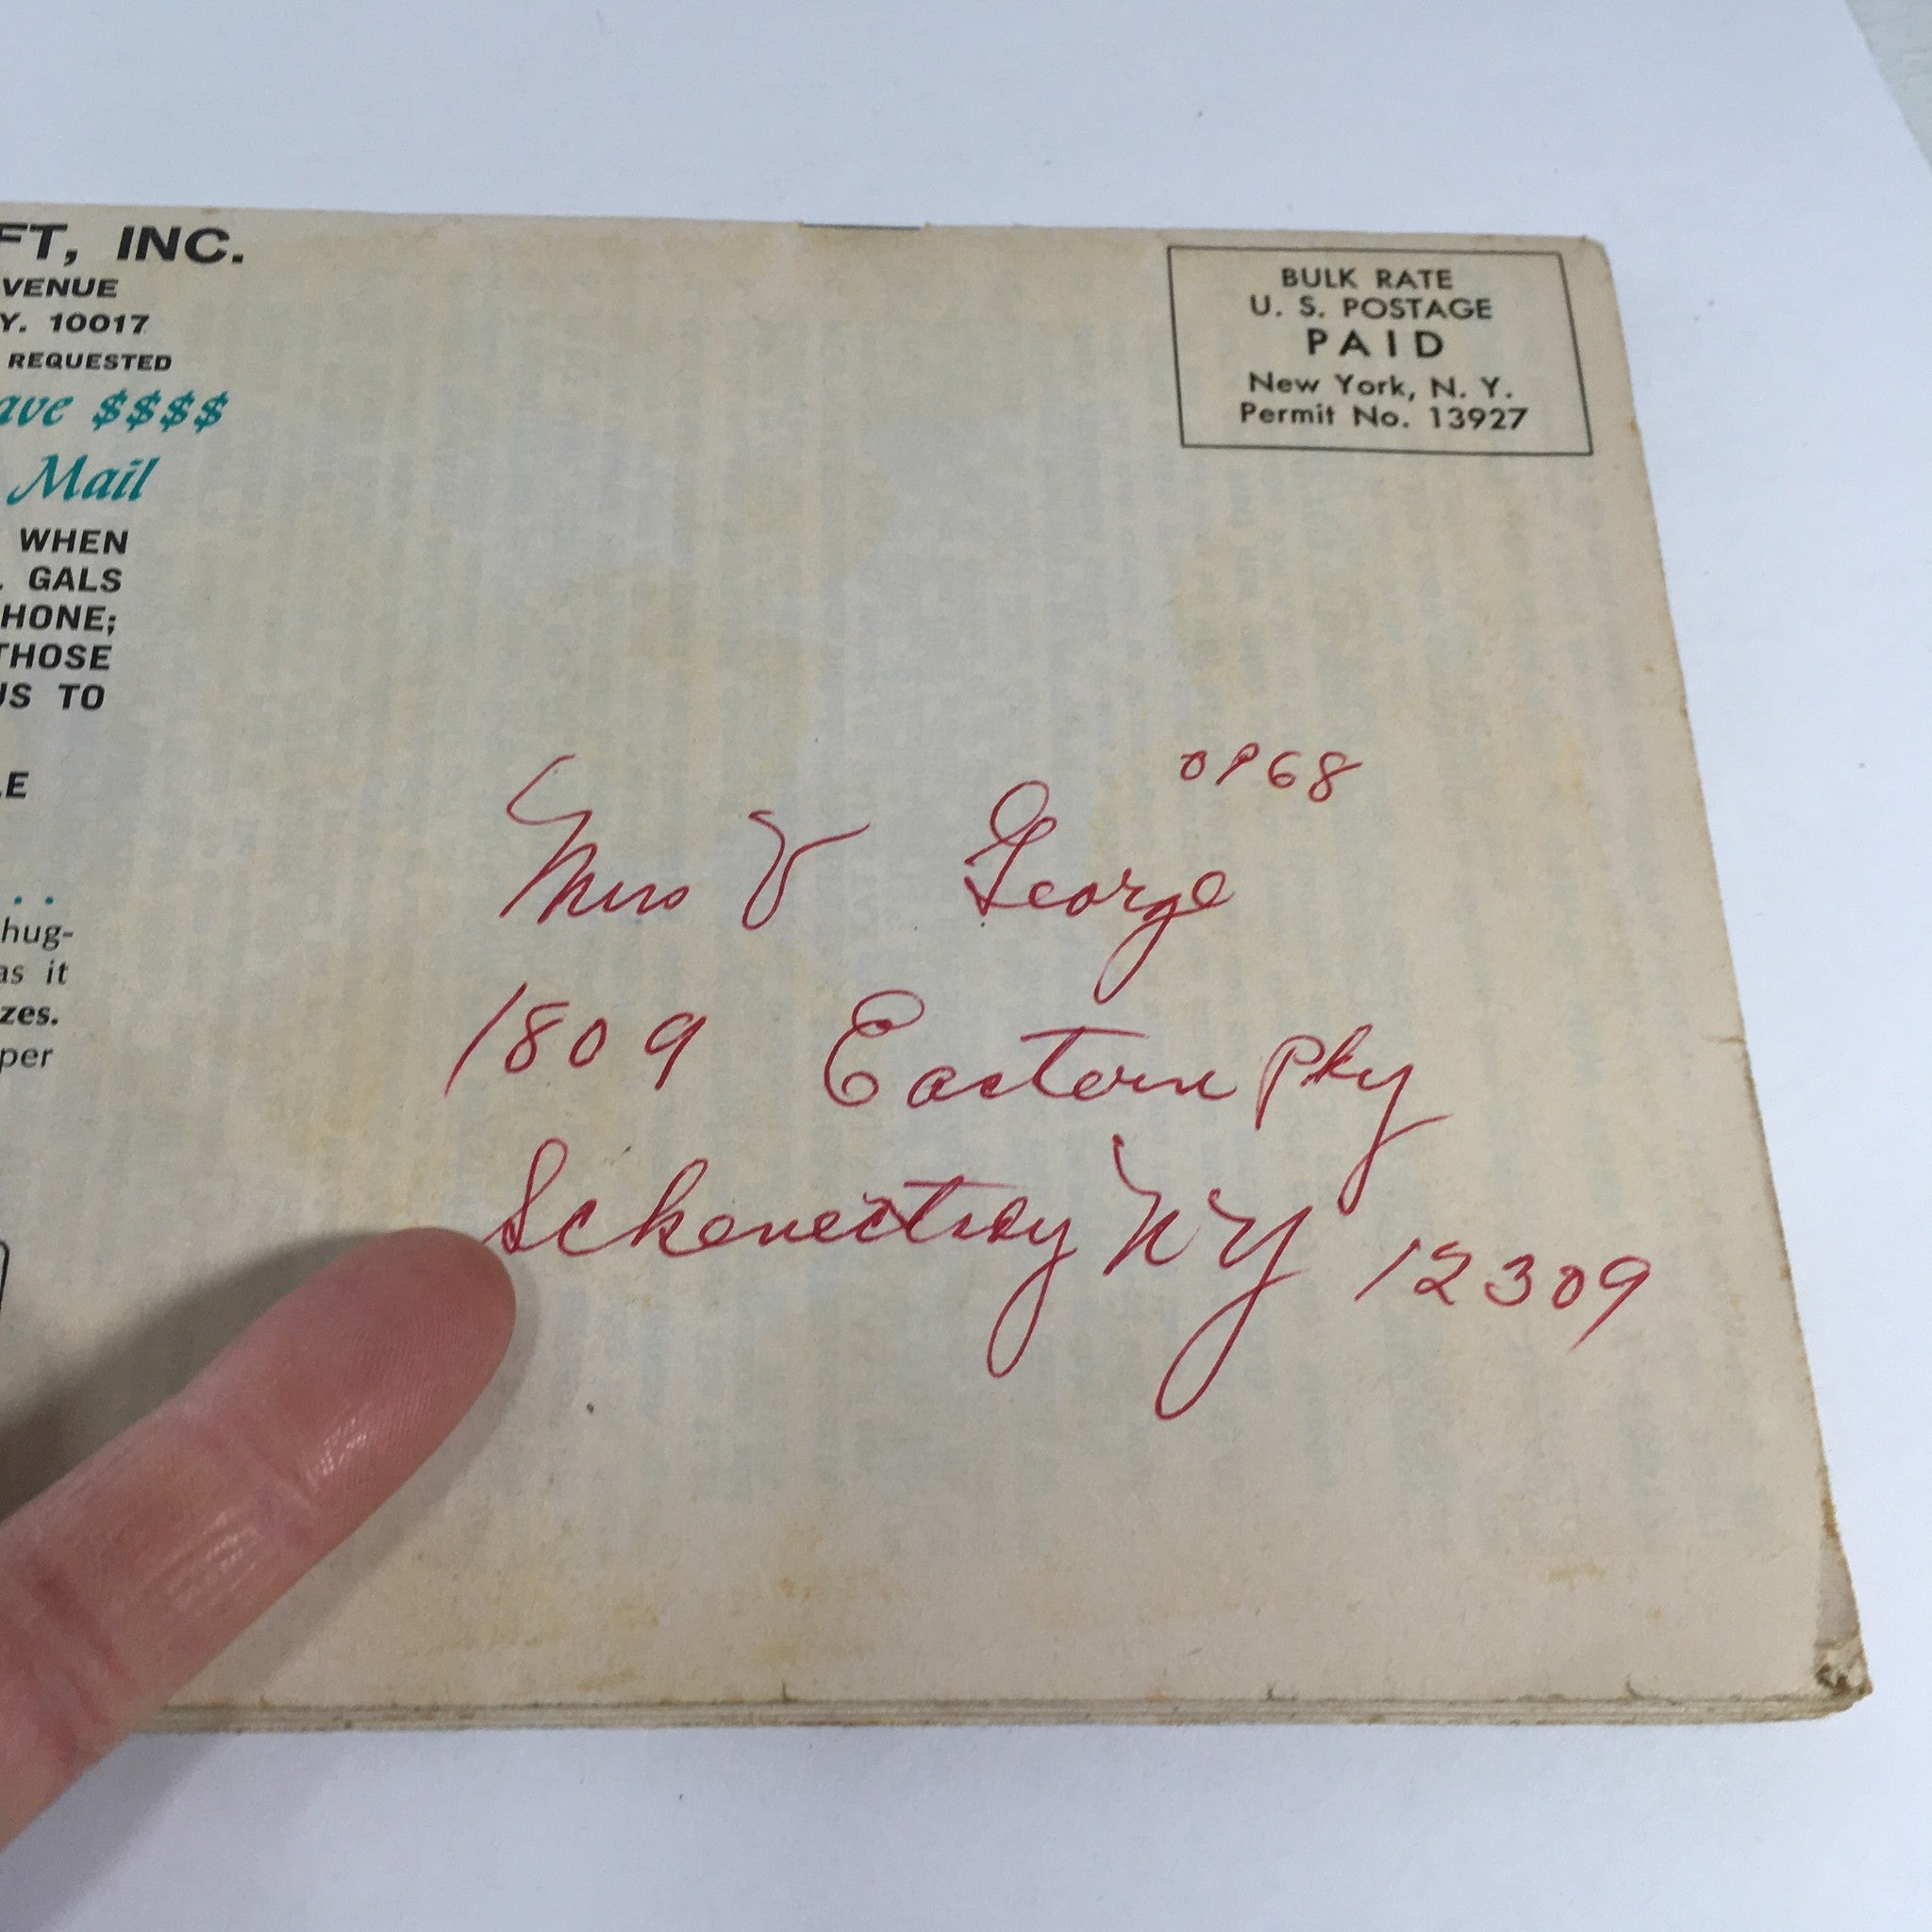 FT, INC.
VENUE
Y. 10017
REQUESTED
ave $$$$
Mail
WHEN
. GALS
HONE;
THOSE
US TO
LE
. .
hug-
as it
zes.
per
BULK RATE
U. S. POSTAGE
PAID
New York, N. Y.
Permit No. 13927
0P68
Mrs V George
1809 Eastern Pky
Schenectady NY 12309